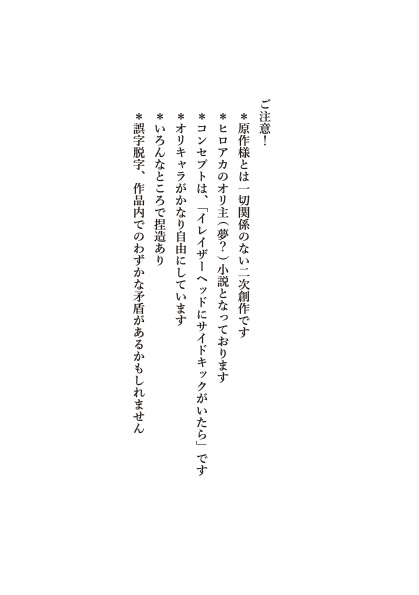 ご注意！
＊原作様とは一切関係のない二次創作です
＊ヒロアカのオリ主（夢？）小説となっております
＊コンセプトは、「イレイザーヘッドにサイドキックがいたら」です
＊オリキャラがかなり自由にしています
＊いろんなところで捏造あり
＊誤字脱字、作品内でのわずかな矛盾があるかもしれません